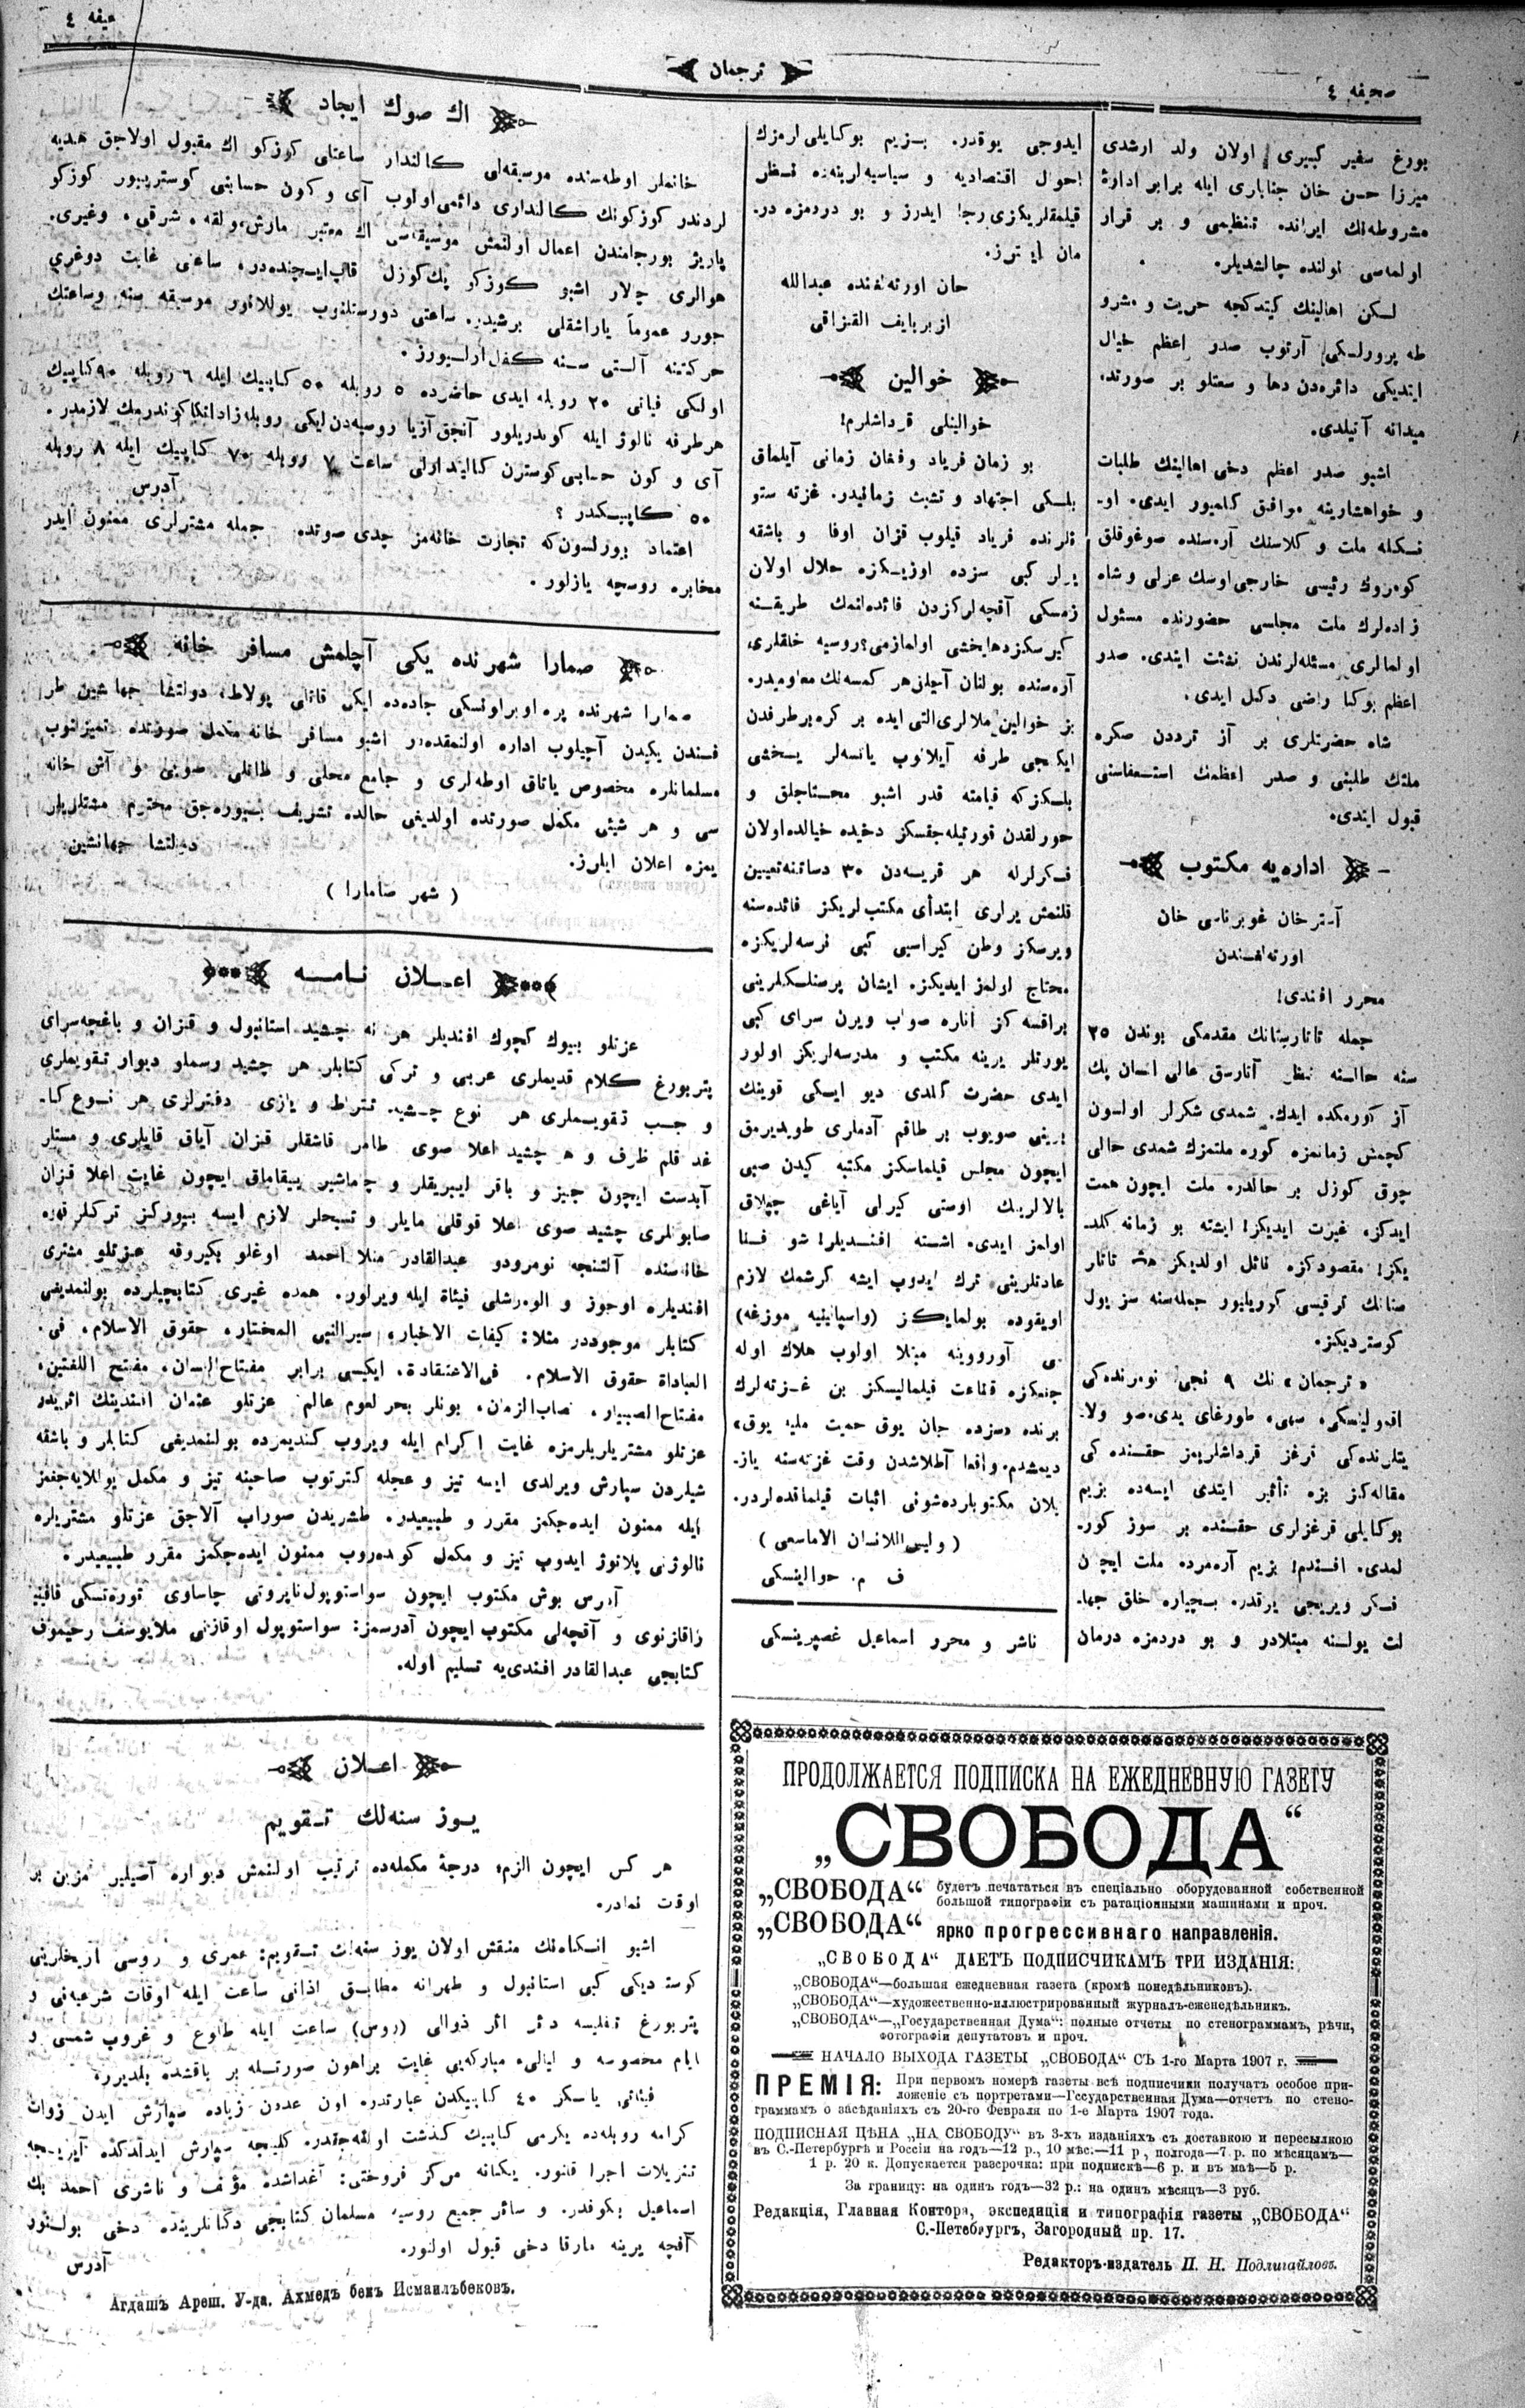 صحیفه ٤
ترجمان
بورغ سفیر کبیری اولان ولد ارشدی
میرزا حسن خان جنابلری ایله برابر ادارهٔ
مشروطه‌نك ایرانده تنظیمی و بر قرار
اولمه‌سی یولنده چالشدیلر.
لکن اهالینك کیتدکجه حریت و مشرو
طه پرورلکی آرتوب صدر اعظم خیال
ایتدیکی دائره‌دن دها و سعتلو بر صورتده
میدانه آتیلدی.
اشبو صدر اعظم دخی اهالینك طلبات
و خواهشارینه موافق کلمیور ایدی. او-
نکله ملت و کلاسنك آره‌سنده صوغوقلق
کومروك رئیسی خارجی اوسك عزلی و شاه
زاده‌لرك ملت مجلسی حضورنده مسئول
اولمالری مسئله‌لرندن نشئت ایتدی. صدر
اعظم بوکا راضی دکل ایدی.
شاه حضرتلری بر آز ترددن صکره
ملتك طلبنی و صدر اعظمك استعفاسنی
قبول ایتدی.
اداره‌یه مکتوب
آسترخان غوبرناسی خان
اورته‌لغندن
محرر افندی!
جمله تاتارستانك مقدمکی بوندن ٢٥
سنه حالنه نظر آنارسق عالی انسان پك
آز کورمکده ایدك. شمدی شکرلر اولسون
کچمش زمانمزه کوره ملتمزك شمدی حالی
چوق کوزل بر حالدر. ملت ایچون همت
ایدکز، غیرت ایدیکز! ایشته بو زمانه کلد-
یکز! مقصودکزه نائل اولدیکز هپ تاتار
کوستردیکز.
«ترجمان» نك ٩ نجی نومرنده‌کی
مقاله‌کز بزه تأثیر ایتدی ایسه‌ده بزیم
بوکایلی قرغزلری حقنده بر سوز کور-
لمدی. افندم! بزیم آره‌مزده ملت ایچون
فکر ویریجی یوقدر. بیچاره خلق جها-
لت یولسنه مبتلادر و بو دردمزه درمان
ایدوجی یوقدر. بزیم بوکایلی لرمزك
احوال اقتصادیه و سیاسیه‌لرینه‌ده نظر
قیلمقلریکزی رجا ایدرز و بو دردمزه در.
مان ایسترز.
خان اورته‌لغنده عبدالله
ازبربایف القزاقی
خوالین
خوالینلی قرداشلرم!
بو زمان فریاد و فغان زمانی آیلماق
بلکی اجتهاد و تشبث زمانیدر. غزته ستو
نلرنده فریاد قیلوب قزان اوفا و باشقه
یرلر کبی سزده اوزیکزه حلال اولان
زمسکی آقچه‌لرکزدن فائده‌لنمك طریقنه
کیرسکزدها یخشی اولمازمی؟ روسیه خلقلری
آره‌سنده بولنان آچلق هر کمسه‌نك معلومیدر.
ایکنجی طرفه آیلانوب یاتسه‌لر یخشی
بلسکزکه قیامته قدر اشبو محتاجلق و
خورلقدن قورتیله‌جقسکز دخیده خیالده اولان
فکرلرله هر قریه‌دن ٣٠ دساتنه تعیین
قلنمش یرلری ابتدائی مکتب لریکز فائده‌سنه
ویرسکز وطن کیراسی کبی نرسه‌لریکزه
محتاج اولمز ایدیکز. ایشان پرستلکلرینی
یورتلر یرینه مکتب و مدرسه‌لریکز اولور
ایدی حضرت کلدی دیو ایسکی قوینك
برینی صویوب بر طاقم آدملری طویدیرمق
ایچون مجلس قیلماسکز مکتبه کیدن صبی
بالالرینك اوستی کیرلی آیاغی چپلاق
اولمز ایدی. اشته افندیلر! شو فنا
عادتلرینی ترك ایدوب ایشه کرشمك لازم
اویقوده بولمایکز
برنده «سزده جان یوق حمیت ملیه یوق»
دیمشدم. واقعا آطلاشدن وقت غزته‌سنه یاز-
یلان مکتوبلرده شونی اثبات قیلماقده‌لردر.
(ولیس اللانسان الاماسعی)
ف م. خوالینسکی
ناشر و محرر اسماعیل غصپرینسکی
اك صوك ایجاد
خانملر اوطه‌سنده موسیقه‌لی کالندار ساعتلی کوزکو اك مقبول اولاجق هدیه
لردندر کوزکونك کالنداری دائمی اولوب آی و کون حسابنی کوستریيور کوزکو
پاریژ بورجامندن اعمال اولنمش موسیقه‌سی اك معتبر مارش، ولقه، شرقی، وغیری.
هوالری چالار اشبو کوزکو پك کوزل قاب ایچنده‌در، ساعتی غایت دوغری
یورر عموماً یاراشقلی برشیدر. ساعتی دورستلنوب یوللانور موسیقه سنه وساعتك
حرکتنه آلتی سنه کفیل اولیورز.
اولکی فیاتی ٢٠ روبله ایدی حاضرده ٥ روبله ٥٠ کاپیك ایله ٦ روبله ٩٠ کاپیك
هرطرفه نالوژ ایله کوندریلور آنجق آزیا روسیه‌دن ایکی روبله زاداتکا کوندرمك لازمدر.
آی و کون حسابی کوسترن کالیندارلی ساعت ٧ روبله ٧٠ کاپیك ایله ٨ روبله
٥٠ کاپیکدر؟ آدرس
اعتماد بیورلسون که تجارت خانه‌مز جدی صوتده. جمله مشترلری ممنون ایدر
مخابره روسچه یازلور.
صمارا شهرنده یکی آچلمش مسافر خانه
صمارا شهرنده پره‌اوبراونسکی جاده‌ده ایکی قاتلی پولاطه دولتشا جهانشین طر
فندن یکیدن آچیلوب اداره اولنمقده‌در اشبو مسافر خانه مکمل صورتده تمیزلنوب
مسلمانلره مخصوص یاتاق اوطه‌لری و جامع محلی و طاتلی صویی و آش خانه
سی و هر شیئی مکمل صورتده اولدیغی حالده تشریف بیوره‌جق محترم مشتریلر
یمزه اعلان ایلرز. دولتشا جهانشین
(شهر صامارا)
اعلان نامه
عزتلو بیوك کچوك افندیلر هر نه چشید استانبول و قزان و باغچه‌سرای
پتربورغ کلام قدیملری عربی و ترکی کتابلر هر چشید رسملو دیوار تقویملری
و جیب تقویملری هر نوع چشید تتراط و یازی دفترلری هر نوع کا-
غد قلم ظرف و هر چشید اعلا صوی طاهر قاشقلر قزان آیاق قاپلری و مستلر
آبدست ایچون جیز و باقر ایبریقلر و چاماشیر ییقاماق ایچون غایت اعلا قزان
صابونلری چشید صوی اعلا قوقلی مایلر و تسبحلر لازم ایسه بیورکز ترکلر قهوه
خانه‌سنده آلتنجه نومرودو عبدالقادر منلا احمد اوغلو بکیروفه عزتلو مشتری
افندیلره اوجوز و الویرشلی فیئاة ایله ویرلور. همده غیری کتابچیلرده بولنمدیغی
کتابلر موجوددر مثلا: کیفات الاخبار، سیرالنبی المختار، حقوق الاسلام، فی.
العباداة حقوق الاسلام. فی‌الاعتقادة. ایکیسی برابر مفتاح‌اللسان. مفتح اللغتین.
عزتلو مشتریلریمزه غایت اکرام ایله ویروب کندیمزده بولنمدیغی کتابلر و باشقه
شیلردن سپارش ویرلدی ایسه تیز و عجله کترتوب صاحبنه تیز و مکمل یوللایه‌جغمز
ایله ممنون ایده‌جکمز مقرر و طبیعیدر. طشریدن صوراب آلاجق عزتلو مشتریلره
نالوژنی پلاتوژ ایدوب تیز و مکمل کوندروب ممنون ایده‌جکمز مقرر طبیعیدر.
آدرس بوش مکتوب ایچون سواستوپول ناپروتی چاساوی توره‌تسکی قافینه
زاقازنوی و آقچه‌لی مکتوب ایچون آدرسمز: سواستوپول اوقازنی ملایوسف رحیموف
کتابچی عبدالقادر افندی‌یه تسلیم اوله.
اعلان
یوز سنه‌لك تقویم
هر کس ایچون الزم، درجهٔ مکمله‌ده ترتیب اولنمش دیواره آصیلیر مزین بر
اوقت نمادر.
پتربورغ تفلیسه دائر اثر ذوالی (روس) ساعت ایله طلوع و غروب شمسی و
ایام مخصوصه و لیالیء مبارکه‌یی غایت براهون صورتله بر باقشده بلدیرر.
فیئاتی یالسکز ٤٠ کاپیکدن عبارتدر، اون عددن زیاده سپارش ایدن ذوات
کرامه روبله‌ده یکرمی کاپیك کذشت اولنه‌جقدر. کلیجه سپارش ایدلدکده آیریجه
تنزیلات اجرا قلنور. یکانه مرکز فروختی: آغداشده مؤلف و ناشری احمد بك
اسماعیل بکوفدر. و سائر جمیع روسیه مسلمان کتابچی دکانلرینده دخی بولنور
آقچه یرینه مارقا دخی قبول اولنور.
آدرس
Агдашъ Ареш. У-да. Ахмедъ бекъ Исмаилъбековъ.
ПРОДОЛЖАЕТСЯ ПОДПИСКА НА ЕЖЕДНЕВНУЮ ГАЗЕТУ
„СВОБОДА“
„СВОБОДА“ будетъ печататься въ спеціально оборудованной собственной
большой типографіи съ ратаціонными машинами и проч.
„СВОБОДА“ ярко прогрессивнаго направленія.
„СВОБОДА“ ДАЕТЪ ПОДПИСЧИКАМЪ ТРИ ИЗДАНІЯ:
„СВОБОДА“—большая ежедневная газета (кромѣ понедѣльниковъ).
„СВОБОДА“—художественно-иллюстрированный журналъ-еженедѣльникъ.
„СВОБОДА“—„Государственная Дума“: полные отчеты по стенограммамъ, рѣчи,
фотографіи депутатовъ и проч.
НАЧАЛО ВЫХОДА ГАЗЕТЫ „СВОБОДА“ СЪ 1-го Марта 1907 г.
ПРЕМІЯ: При первомъ номерѣ газеты всѣ подписчики получатъ особое при-
ложеніе съ портретами—Государственная Дума—отчетъ по стено-
граммамъ о засѣданіяхъ съ 20-го Февраля по 1-е Марта 1907 года.
ПОДПИСНАЯ ЦѢНА „НА СВОБОДУ“ въ 3-хъ изданіяхъ съ доставкою и пересылкою
въ С.-Петербургѣ и Россіи на годъ—12 р., 10 мѣс.—11 р., полгода—7 р. по мѣсяцамъ—
1 р. 20 к. Допускается разсрочка: при подпискѣ—6 р. и въ маѣ—5 р.
За границу: на одинъ годъ—32 р.: на одинъ мѣсяцъ—3 руб.
Редакція, Главная Контора, экспедиція и типографія газеты „СВОБОДА“
С.-Петебургъ, Загородный пр. 17.
Редакторъ-издатель П. Н. Подлигайловъ.